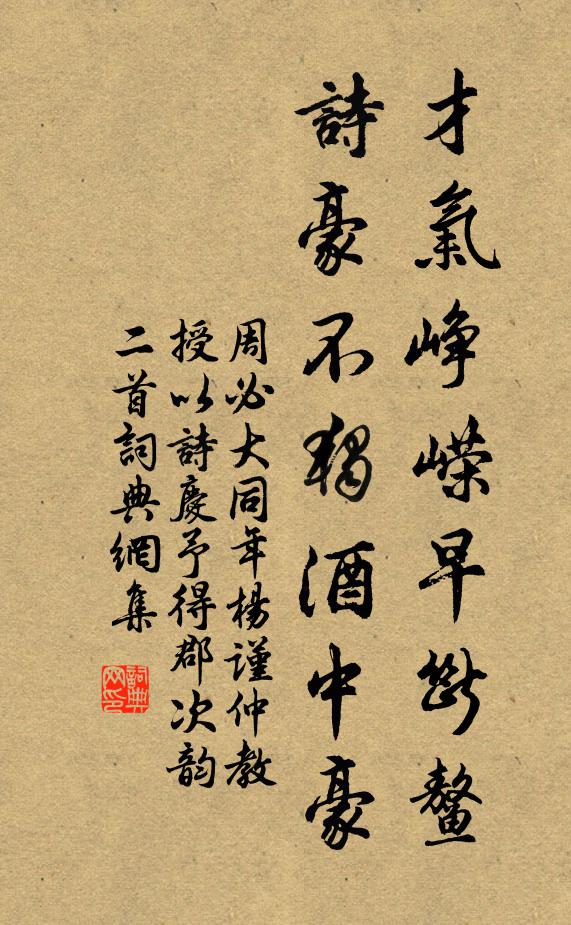 才氣崢嶸早斷鼇
詩豪不獨酒中豪
周必大同年楊謹仲教
授以詩慶予得郡次韵
二首詞典網集
詞典網印